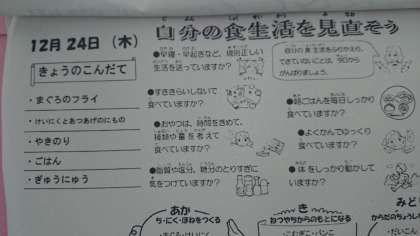 12月24日（木）
自分の食生活を見直そう
きょうのこんだて
・まぐろのフライ
・けいにくとあつあげのにもの
・やきのり
・ごはん
・ぎゅうにゅう
●早寝・早起きなど、規則正しい
生活を送っていますか？
自分の食生活をふりかえり、
できていないことは、今日から
がんばりましょう。
●すききらいしないで
食べていますか？
●朝ごはんを毎日しっかり
食べていますか？
●おやつは、時間をきめて、
種類や量を考えて
食べていますか？
●よくかんでゆっくり
食べていますか？
●脂質や塩分、糖分のとりすぎに
気をつけていますか？
●体をしっかり動かして
いますか？
あか
ち・にく・ほねをつくる
・まぐろ・けいにく
き
ねつやちからのもとになる
・こむぎこ・パンこ
みど
からだのちょうし
・だいこん